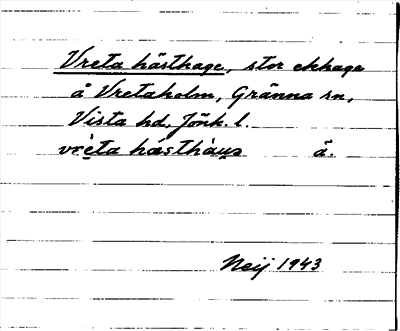 Vreta hästhage, stor ekhage
å Vretaholm, Gränna sn,
Vista hd, Jönk. l.
vrèta hästhàus å.
Neij 1943